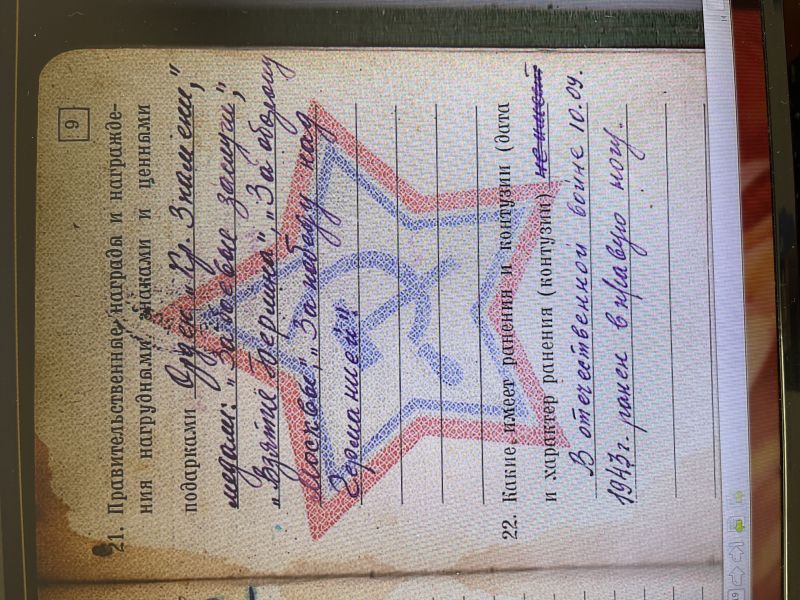 9
21. Правительственные награды и награжде-
ния нагрудными знаками и ценными
подарками Орден „Кр. Знамени,"
медали: "За боевые заслуги",
„Взятие Берлина", „За оборону
Москвы", „За победу над
Германией".
22. Какие имеет ранения и контузии (дата
и характер ранения (контузии) не имеет
В отечественной войне 10.09.
1943 г. ранен в правую ногу.